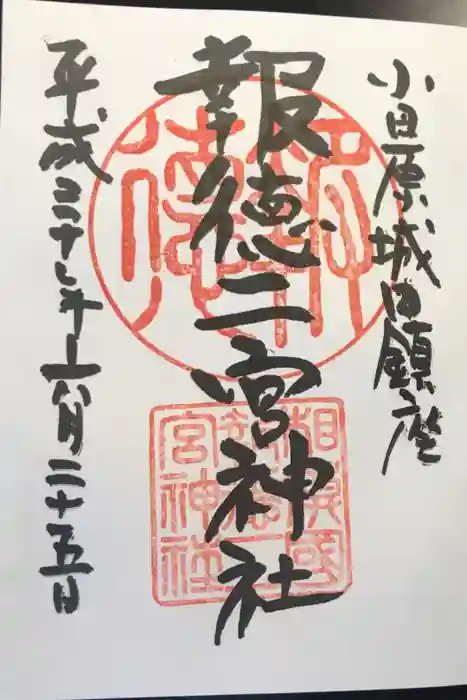 小田原城内鎮座
報徳二宮神社
平成 年 月二十五日
報徳
相模國
報徳二
宮神社